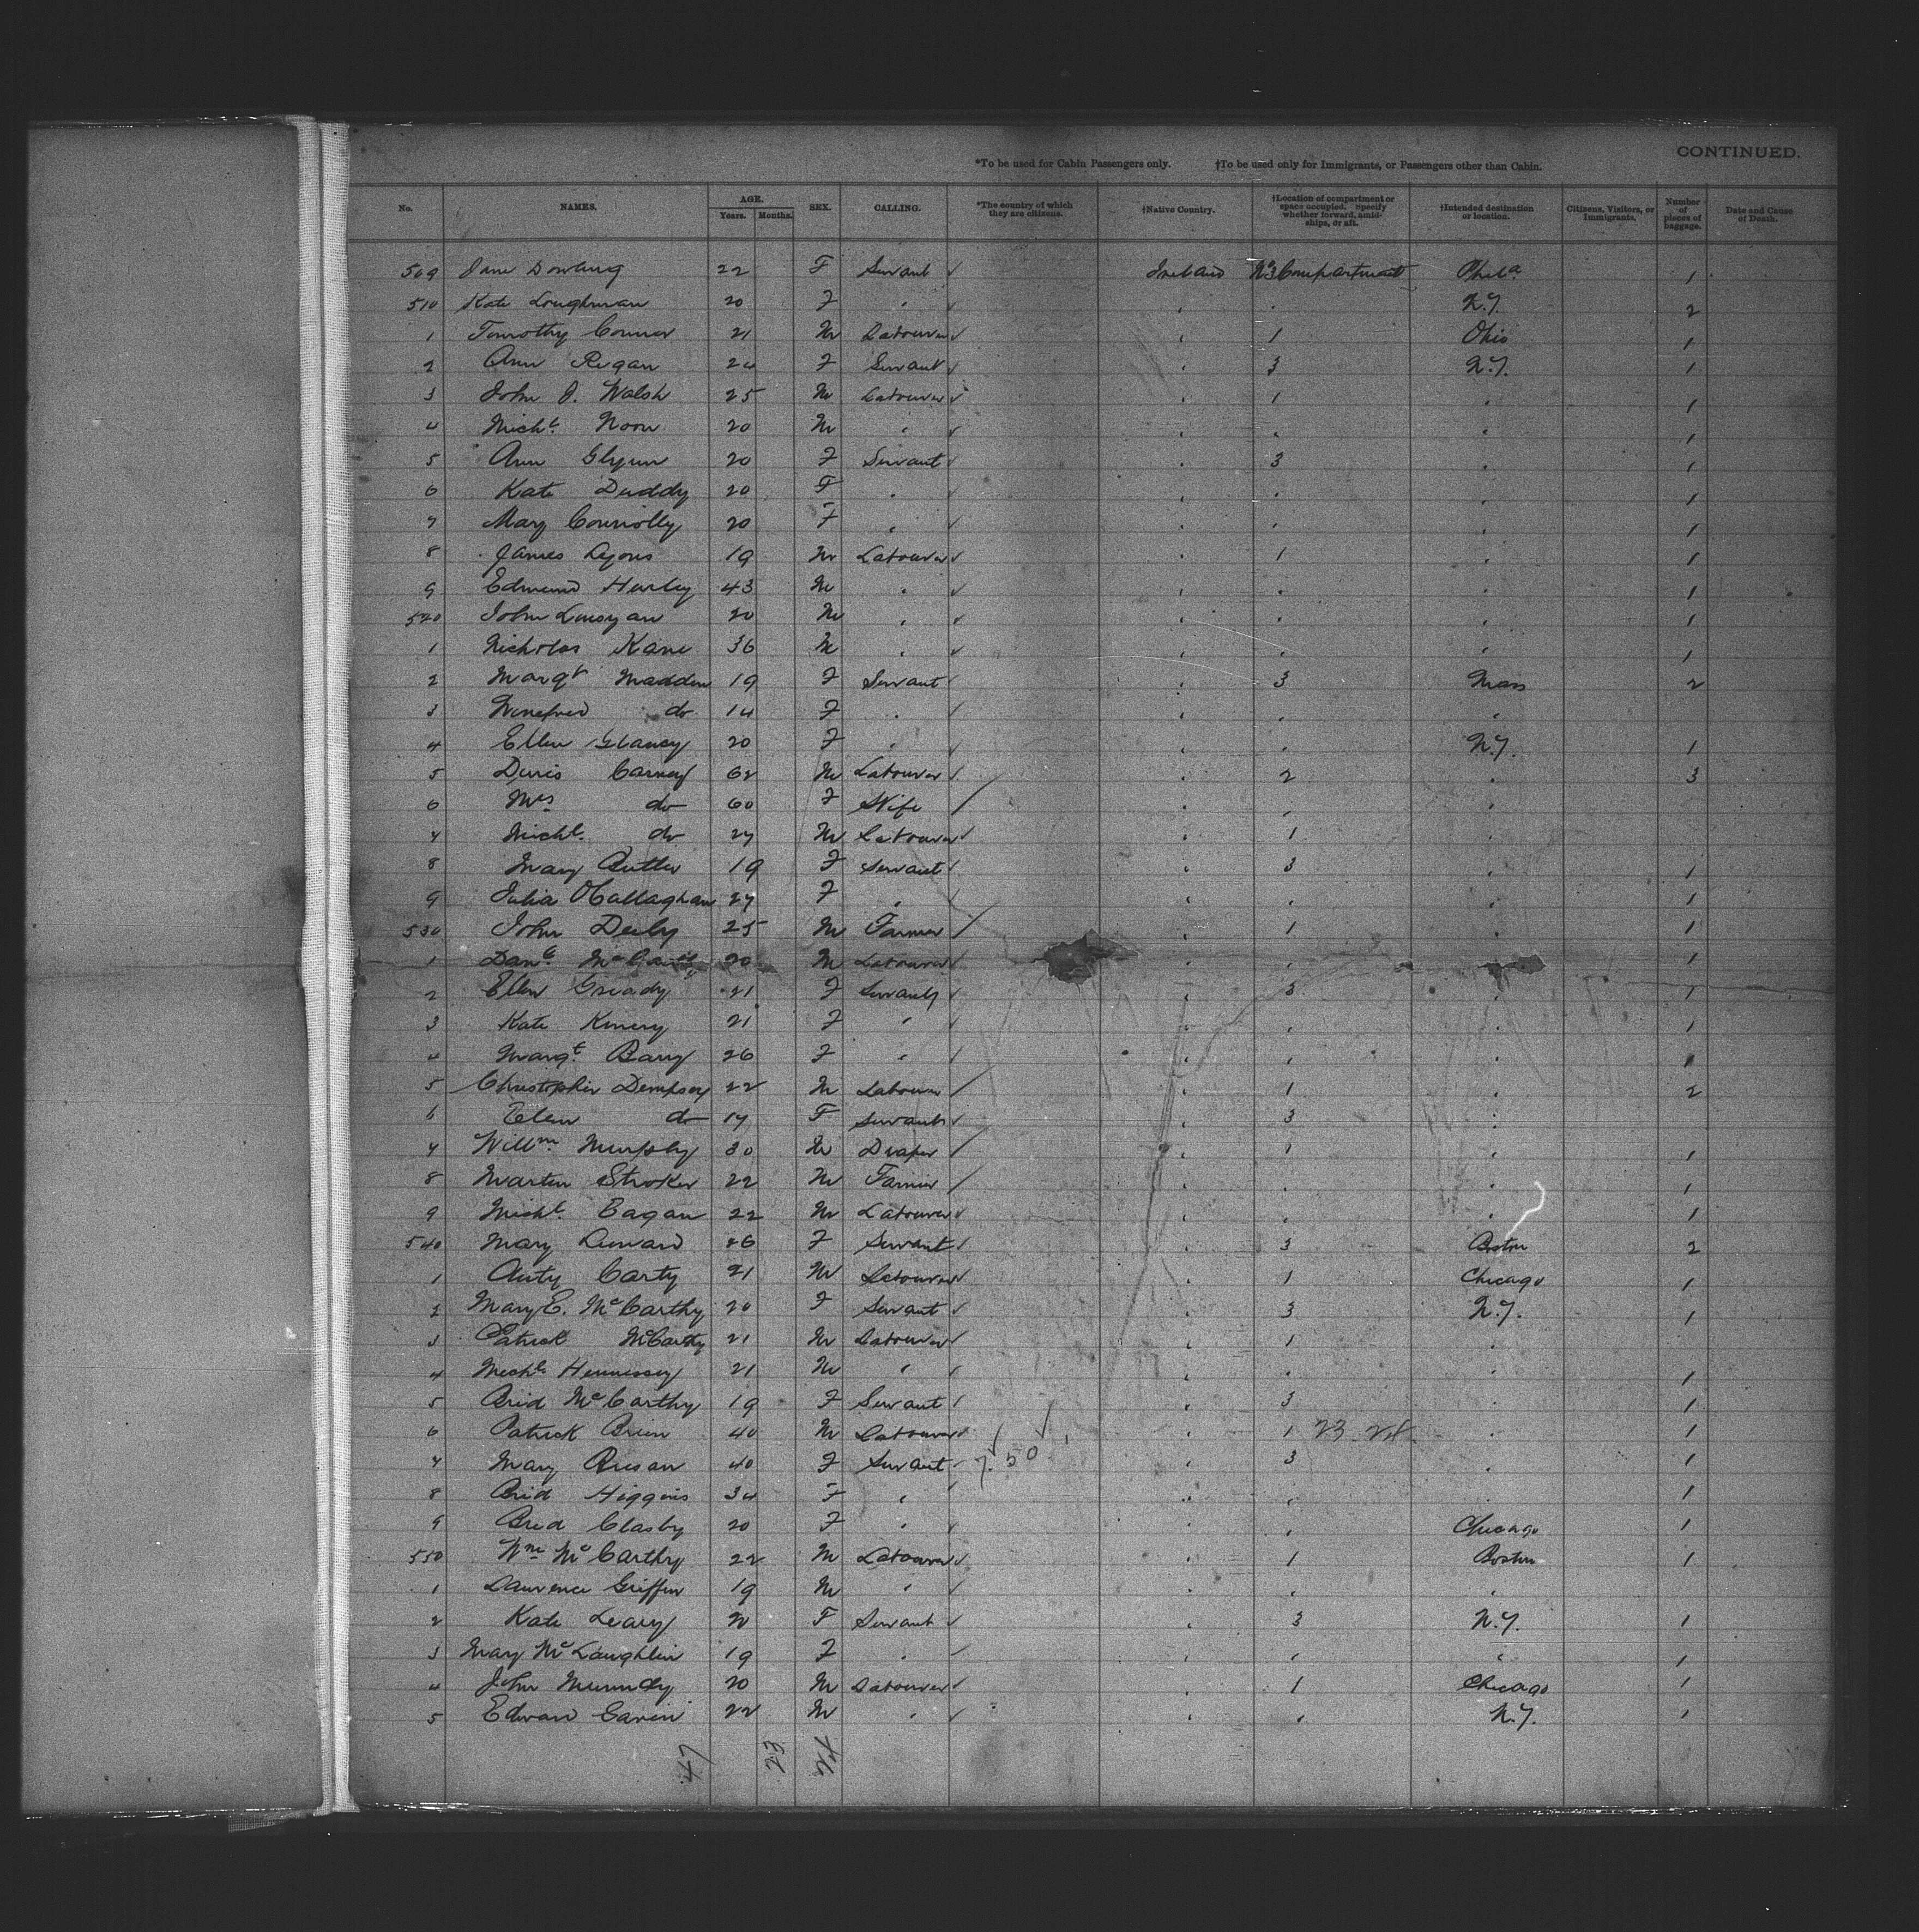 CONTINUED.
*To be used for Cabin Passengers only. †To be used only for Immigrants, or Passengers other than Cabin.
No. NAMES. AGE. Years. Months. SEX. CALLING. *The country of which they are citizens. †Native Country. †Location of compartment or space occupied. Specify whether forward, amidships, or aft. †Intended destination or location. Citizens, Visitors, or Immigrants. Number of pieces of baggage. Date and Cause of Death.
509 Jane Dowling 22 F Servant ✓ Ireland No 3 Compartment Phila 1
510 Kate Loughman 20 F " ✓ " " N.Y. 2
1 Timothy Connor 21 M Labourer ✓ " 1 Ohio 1
2 Ann Regan 24 F Servant ✓ " 3 N.Y. 1
3 John J. Walsh 25 M Labourer ✓ " 1 " 1
4 Michl. Noon 20 M " ✓ " " " 1
5 Ann Glynn 20 F Servant ✓ " 3 " 1
6 Kate Duddy 20 F " ✓ " " " 1
7 Mary Connolly 20 F " ✓ " " " 1
8 James Lyons 19 M Labourer ✓ " 1 " 1
9 Edmund Hurley 43 M " ✓ " " " 1
520 John 20 M " ✓ " " " 1
1 Nicholas Kane 36 M " ✓ " " " 1
2 Margt Madden 19 F Servant ✓ " 3 Mass 2
3 Winefred do 14 F " ✓ " " "
4 Ellen Glancy 20 F " ✓ " " N.Y. 1
5 Denis Carney 62 M Labourer ✓ " 2 " 3
6 Mrs do 60 F Wife / " " "
7 Michl. do 27 M Labourer ✓ " 1 "
8 Mary Butler 19 F Servant ✓ " 3 " 1
9 Julia O'Callaghan 27 F " ✓ " " " 1
530 John 25 M Farmer / " 1 " 1
1 Danl. 20 M Labourer ✓ " " 1
2 Ellen Gready 21 F Servant ✓ " 3 " 1
3 Kate 21 F " ✓ " " " 1
4 Margt. Barry 26 F " ✓ " " " 1
5 Christopher Dempsey 22 M Labourer / " 1 " 2
6 Ellen do 17 F Servant ✓ " 3 "
7 Willm. Murphy 30 M Draper / " 1 " 1
8 Martin Stroker 22 M Farmer / " " " 1
9 Michl. Eagan 22 M Labourer ✓ " " " 1
540 Mary 26 F Servant ✓ " 3 Boston 2
1 Anty Carty 21 M Labourer ✓ " 1 Chicago 1
2 Mary E. McCarthy 20 F Servant ✓ " 3 N.Y. 1
3 Patrick McCarthy 21 M Labourer ✓ " 1 "
4 Michl. Hennessey 21 M " ✓ " " " 1
5 Brid McCarthy 19 F Servant ✓ " 3 " 1
6 Patrick Brien 40 M Labourer ✓ " 1 23 24 " 1
7 Mary 40 F Servant ✓ 7.50 " 3 " 1
8 Brid Higgins 34 F " ✓ " " " 1
9 Brid Clasby 20 F " ✓ " " Chicago 1
550 Wm McCarthy 22 M Labourer ✓ " 1 Boston 1
1 Laurence Griffin 19 M " ✓ " " "
2 Kate Leary 20 F Servant ✓ " 3 N.Y. 1
3 Mary McLaughlin 19 F " ✓ " " " 1
4 John 20 M Labourer ✓ " 1 Chicago 1
5 Edward Gavin 22 M " ✓ " " N.Y. 1
47 23 24